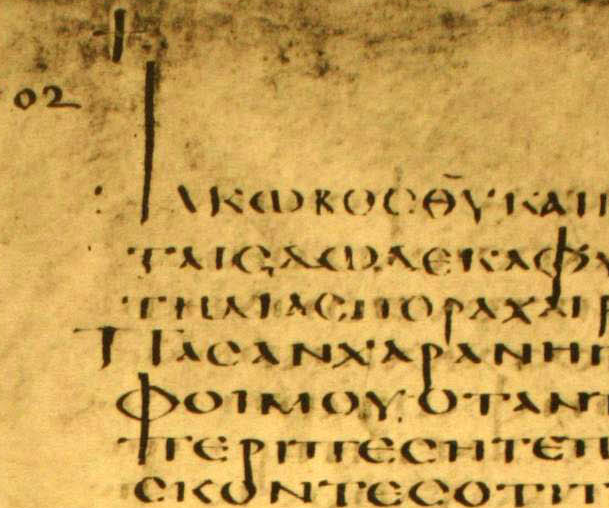 02
ΙΑΚΩΒΟϹΘ̅Υ̅ΚΑΙ
ΤΑΙϹΔΩΔΕΚΑΦΥ
ΤΗΔΙΑϹΠΟΡΑΧΑΙΡ
ΠΑϹΑΝΧΑΡΑΝΗΓ
ΦΟΙΜΟΥ·ΟΤΑΝΠ
ΠΕΡΙΠΕϹΗΤΕΠ
ϹΚΟΝΤΕϹΟΤΙΤ